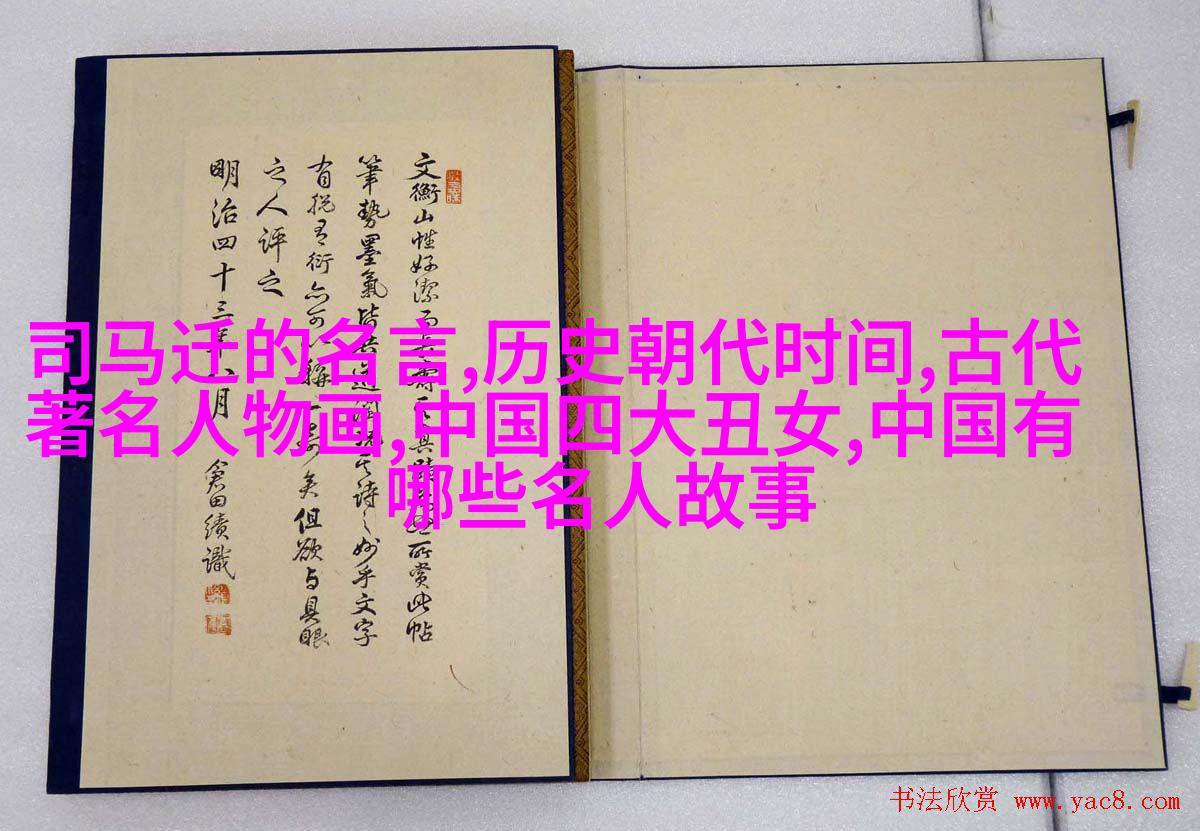 文衡山性好潔而所賞此帖
筆勢墨氣皆詩之妙乎文字
亦可稱一矣但欲与具眼
之人評之
明治四十三年八月 倉田績識
司马迁的名言,历史朝代时间,古代
著名人物画,中国四大丑女,中国有
哪些名人故事
书法欣赏 www.yac8.com